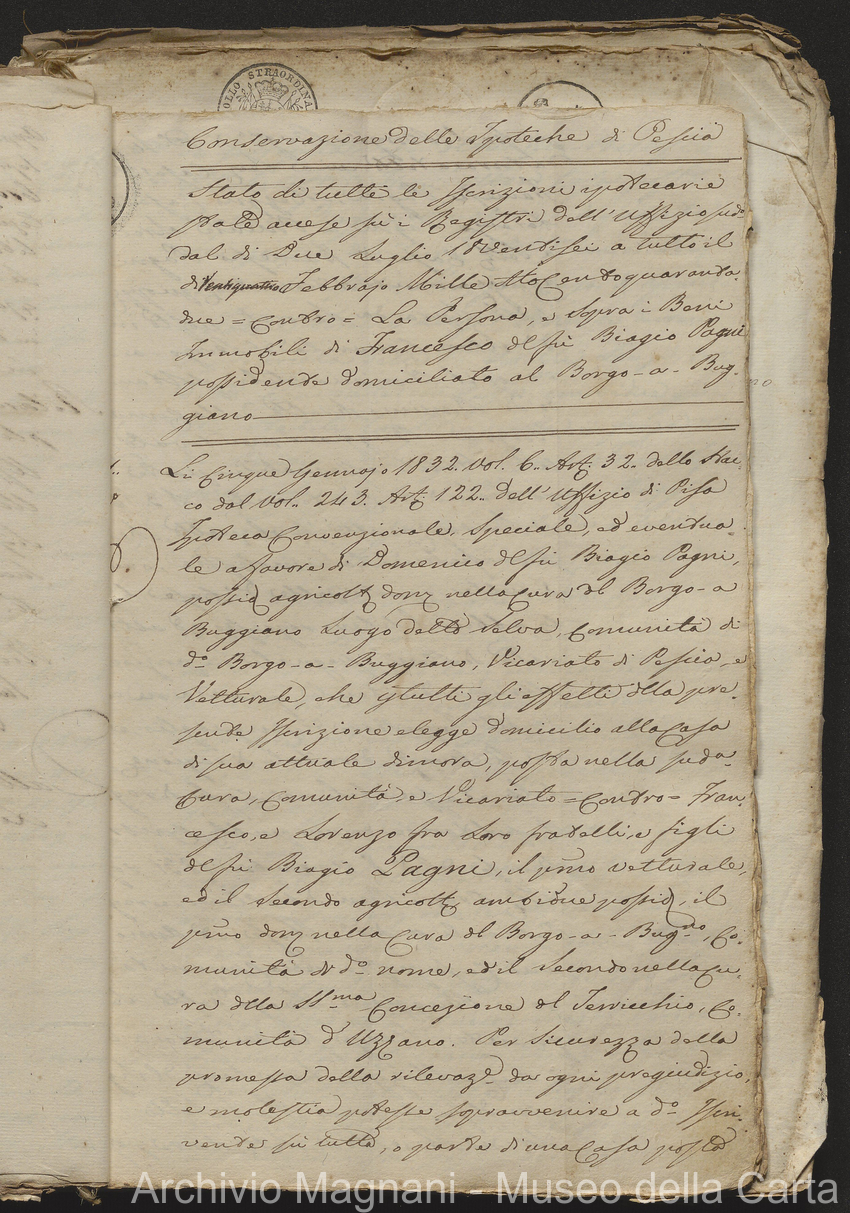 OLLO STRAORDINA
Conservazione delle Ipoteche di Pescia
Stato di tutte le Iscrizioni ipotecarie
state accese sù i Registri dell' Uffizio sudo
dal dì Due Luglio 18Ventisei a tutto il
dì Ventiquattro Febbrajo Mille Otto Cento quaranta
due = Contro = La Persona, e Sopra i Beni
Immobili di Francesco del fù Biagio Pagni
possidente domiciliato al Borgo-a-Bug-
giano
Li Cinque Gennajo 1832. Vol. 6.. Art. 32.. dello Stac-
co dal Vol.. 243. Art. 122.. dell' Uffizio di Pisa
Ipoteca Convenzionale, Speciale, ed eventua-
le a favore di Domenico del fù Biagio Pagni,
possid. agricolt. dom. nella Cura del Borgo-a
Buggiano Luogo detto Selva, Comunità di
do. Borgo-a-Buggiano, Vicariato di Pescia, e
Vetturale, che p tutti gli effetti della pre-
sente Iscrizione elegge domicilio alla Casa
di sua attuale dimora, posta nella suda.
Cura, Comunità, e Vicariato = Contro = Fran-
cesco, e Lorenzo fra Loro fratelli, e figli
del fù Biagio Pagni, il pmo vetturale,
ed il Secondo agricolt. ambidue possid., il
pmo dom. nella Cura del Borgo-a-Bug.no, Co-
munità di do. nome, ed il Secondo nella Cu-
ra della SSma Concezione del Torricchio, Co-
munità d'Uzzano. Per Sicurezza della
promessa della rilevaze. da ogni pregiudizio,
e molestia potesse sopravvenire a do. Iscri-
vente sù tutta, o parte di una Casa posta
Archivio Magnani - Museo della Carta